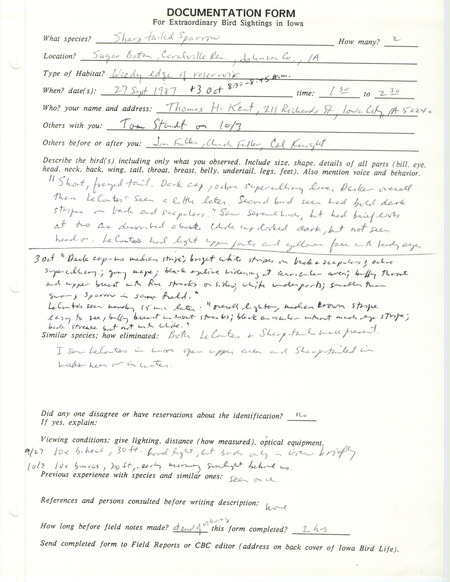 DOCUMENTATION FORM
For Extraordinary Bird Sightings in Iowa
What species? Sharp-tailed Sparrow How many? 2
Location? Sugar Bottom, Coralville Res., Johnson Co., IA
Type of Habitat? Weedy edge of reservoir
When? date(s): 27 Sept 1987 + 3 Oct 8:30-8:45 AM time: 1 30 to 2 30
Who? your name and address: Thomas H. Kent, 211 Richards St, Iowa City, IA
Others with you: Tom Staudt on 10/3
Others before or after you: Jim Fuller, Chuck Fuller, Cal Knight
Describe the bird(s) including only what you observed. Include size, shape, details of all parts (bill, eye,
head, neck, back, wing, tail, throat, breast, belly, undertail, legs, feet). Also mention voice and behavior.
"Short, frayed tail. Dark cap, ochre superciliary line. Darker overall
than LeConte's seen a little later. Second bird seen had bold dark
stripes on back and scapulars." Saw several birds, but had brief looks
at two as described above. Cap looked dark, but not seen
head on. LeConte's had light upper parts and yellower face with beady eye.
3 Oct "Dark cap - no median stripe; bright white stripes on back & scapulars; ochre
superciliary; gray nape; black eyeline widening at auricular area; buffy throat
and upper breast with fine streaks on sides; white underparts; smaller than
Song Sparrow in same field."
LeConte's seen nearby 15 min later: "overall lighter, median crown stripe
easy to see; buffy breast without streaks; black auricular without much eye stripe;
back streaks but not white."
Similar species; how eliminated: Both LeConte's & Sharp-tail were present.
I saw LeConte's in more open upper area and Sharp-tailed in
weeds near or in water.
Did any one disagree or have reservations about the identification? no
If yes, explain:
Viewing conditions: give lighting, distance (how measured), optical equipment.
9/27 10x binocs, 30 ft. good light, but birds only in view briefly
10/3 10x binocs, 30 ft., early morning sunlight behind us.
Previous experience with species and similar ones: seen once
References and persons consulted before writing description: none
How long before field notes made? at end of viewing this form completed? 2 hrs
Send completed form to Field Reports or CBC editor (address on back cover of Iowa Bird Life).